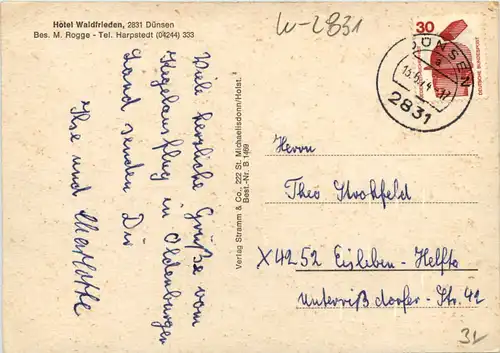 Hotel Waldfrieden, 2831 Dünsen
Bes. M. Rogge - Tel. Harpstedt (04244) 333
W-2831
30
DEUTSCHE BUNDESPOST
DÜNSEN
a
2831
Viele herzliche Grüße vom
Kegelausflug in Oldenburger
Land senden Dir
Ilse und Charlotte
Verlag Stramm & Co., 222 St. Michaelisdonn/Holst.
Best.-Nr. B 1469
Herrn
Theo Strohfeld
X 4252 Eisleben - Helfta
Unterrißdorfer-Str. 42